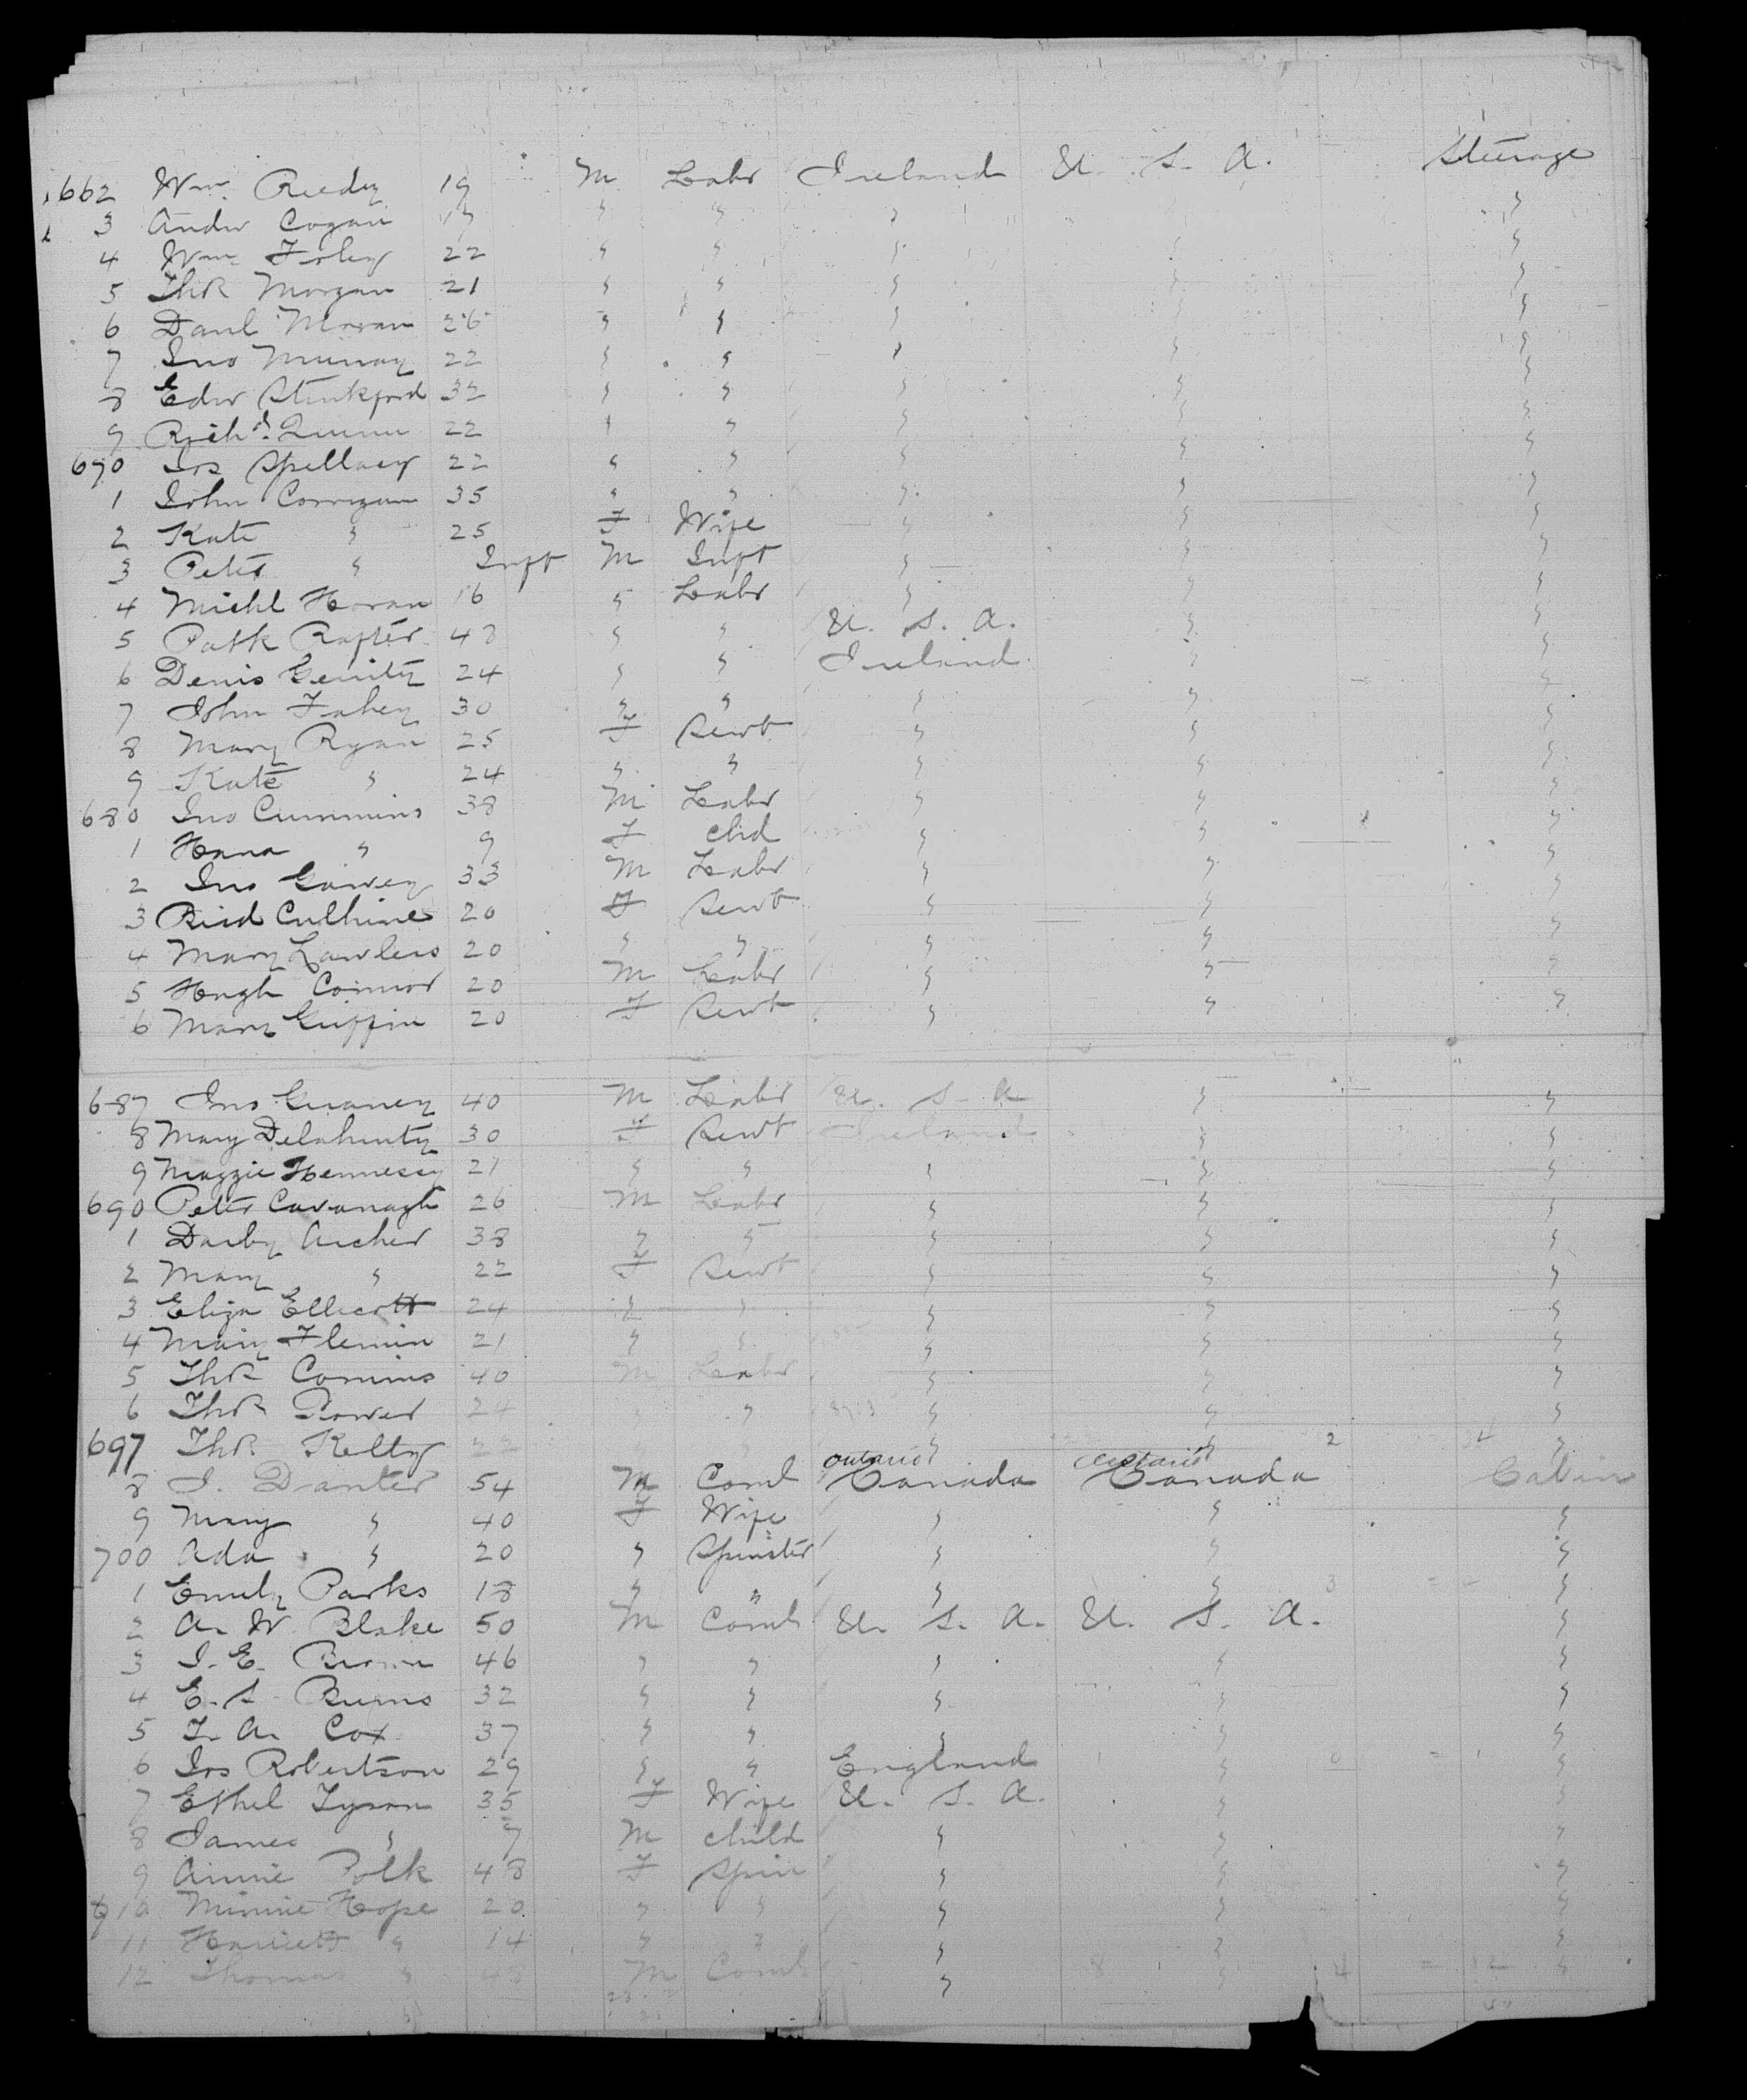 662 Wm. Reedy 19 M Labr Ireland U. S. A. Steerage
3 Andw Cogan 17 " " " "
4 Wm Foley 22 " " " " "
5 Thos Morgan 21 " " " " "
6 Danl Moran 26 " " " " "
7 Jno Murray 22 " " " " "
8 Edw 32 " " " " "
9 Richd. Quinn 22 " " " " "
670 Jos Spellacy 22 " " " " "
1 John Corrigan 35 " " " " "
2 Kate " 25 F Wife " " "
3 Peter " Inft M Inft " " "
4 Michl Horan 16 " Labr " " "
5 Patk Rafter 48 " " U. S. A. " "
6 Denis Gerrity 24 " " Ireland " "
7 John Fahey 30 " " " " "
8 Mary Ryan 25 F Servt " " "
9 Kate " 24 " " " " "
680 Jno Cummins 38 M Labr " " "
1 Hana " 9 F chd " " "
2 Jno 33 M Labr " " "
3 Brid Culhine 20 F Servt " " "
4 Mary Lawless 20 " " " " "
5 Hugh Connor 20 M Labr " " "
6 Mary Griffin 20 F Servt " " "
687 Jno 40 M Labr U. S. A " "
8 Mary Delahunty 30 F Servt Ireland " "
9 Maggie Hennessy 21 " " " " "
690 Peter Cavanagh 26 M Labr " " "
1 Darby Archer 38 " " " " "
2 Mary " 22 F Servt " " "
3 Eliza Ellicott 24 " " " " "
4 Mary Flemin 21 " " " " "
5 Thos Comins 40 M Labr " " "
6 Thos Power 24 " " " "
697 Thos Kelty 22 " " " 2 "
8 J. Danter 54 M Coml Ontario Canada Ontario Canada Cabin
9 Mary " 40 F Wife " " "
700 Ada " 20 " Spinster " " "
1 Emily Parks 18 " " " " "
2 A. W. Blake 50 M Coml U. S. A. U. S. A. "
3 J. E. Brown 46 " " " " "
4 E. S. Burns 32 " " " " "
5 T. A. Cox 37 " " " " "
6 Jos Robertson 29 " " England " "
7 Ethel Tyson 35 F Wife U. S. A. " "
8 James " 7 M child " " "
9 Annie Polk 48 F Spin " " "
10 Minnie Hope 20 " " " " "
11 Harriett " 14 " " " " "
12 Thomas " 48 M Coml " " "